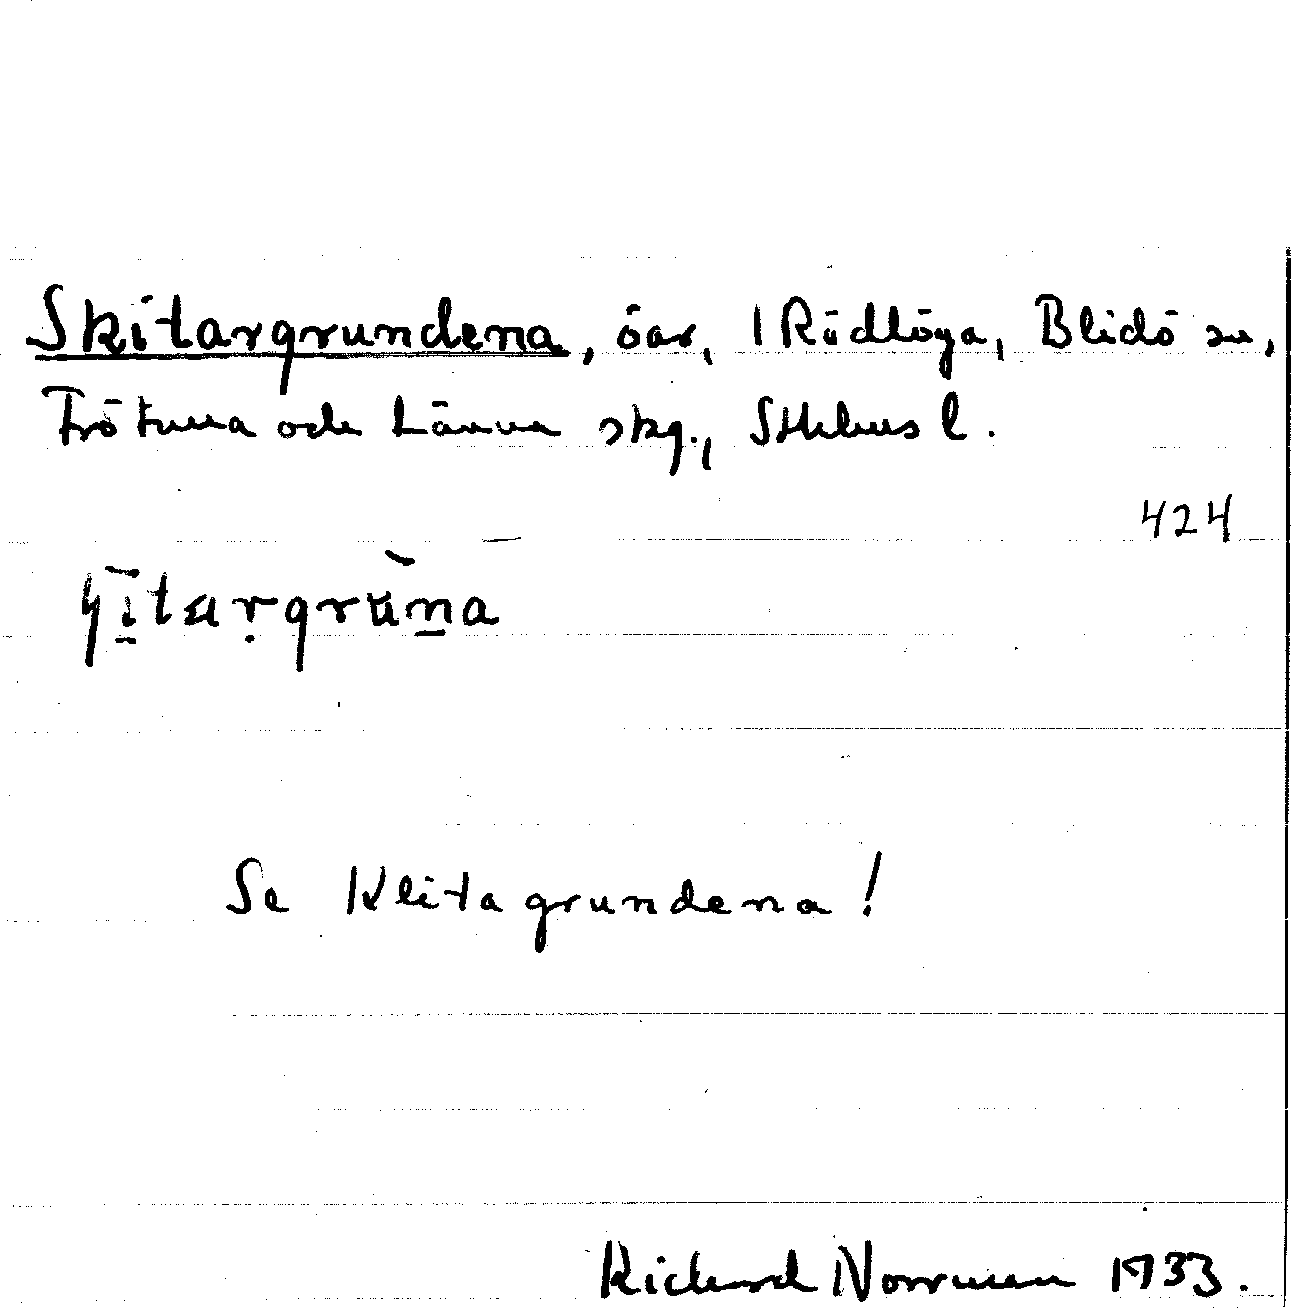 Skitargrundena, öar, 1 Rödlöga, Blidö sn,
Frötuna och Länna skg., Sthlms l.
424
Se Klitagrundena!
Richard Norrman 1933.